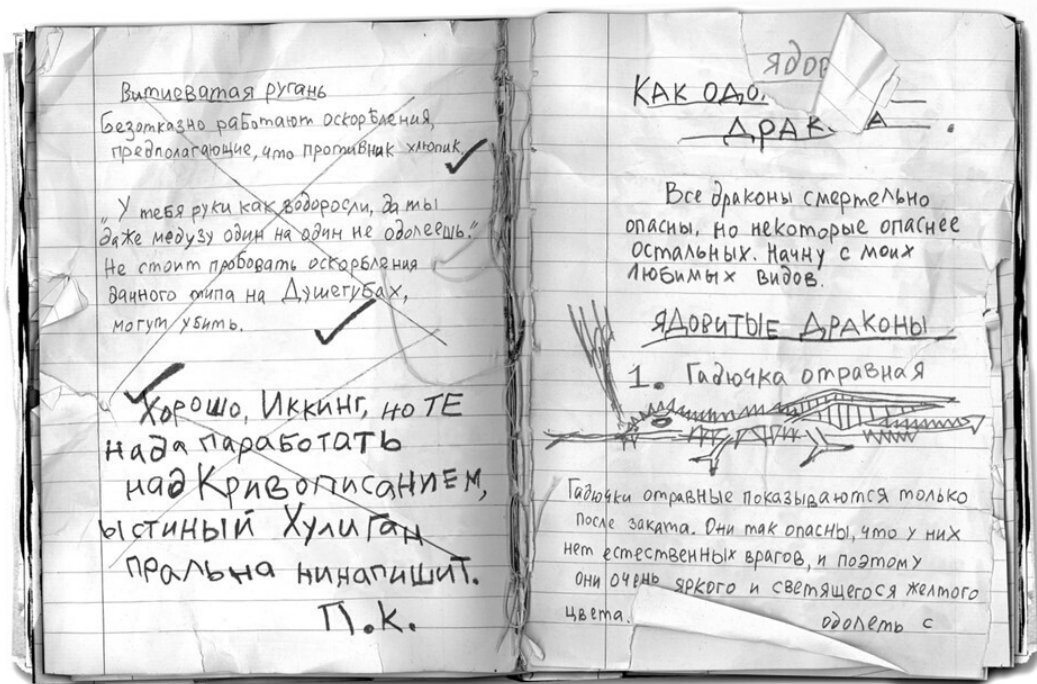 Витиеватая ругань
Безотказно работают оскорбления,
предполагающие, что противник хлюпик.
„У тебя руки как водоросли, да ты
даже медузу один на один не одолеешь."
Не стоит пробовать оскорбления
данного типа на Душегубах,
могут убить.
Хорошо, Иккинг, но ТЕ
нада паработать
над Кривописанием,
ыстиный Хулиган
пральна нинапишит.
П.К.
КАК
Все драконы смертельно
опасны, но некоторые опаснее
остальных. Начну с моих
любимых видов.
ЯДОВИТЫЕ ДРАКОНЫ
1. Гадючка отравная
Гадючки отравные показываются только
после заката. Они так опасны, что у них
нет естественных врагов, и поэтому
они очень яркого и светящегося желтого
цвета.
одолеть с